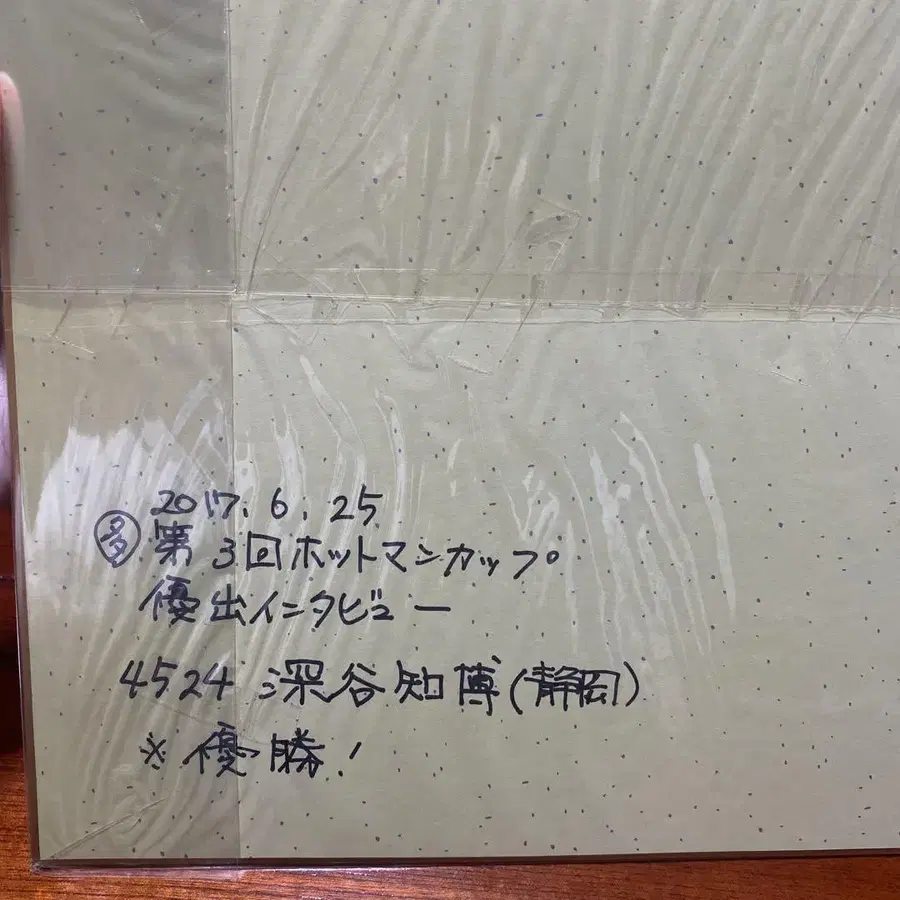 2017.6.25
㊂多 第3回ホットマンカップ
優出インタビュー
4524 深谷知博(静岡)
※優勝!